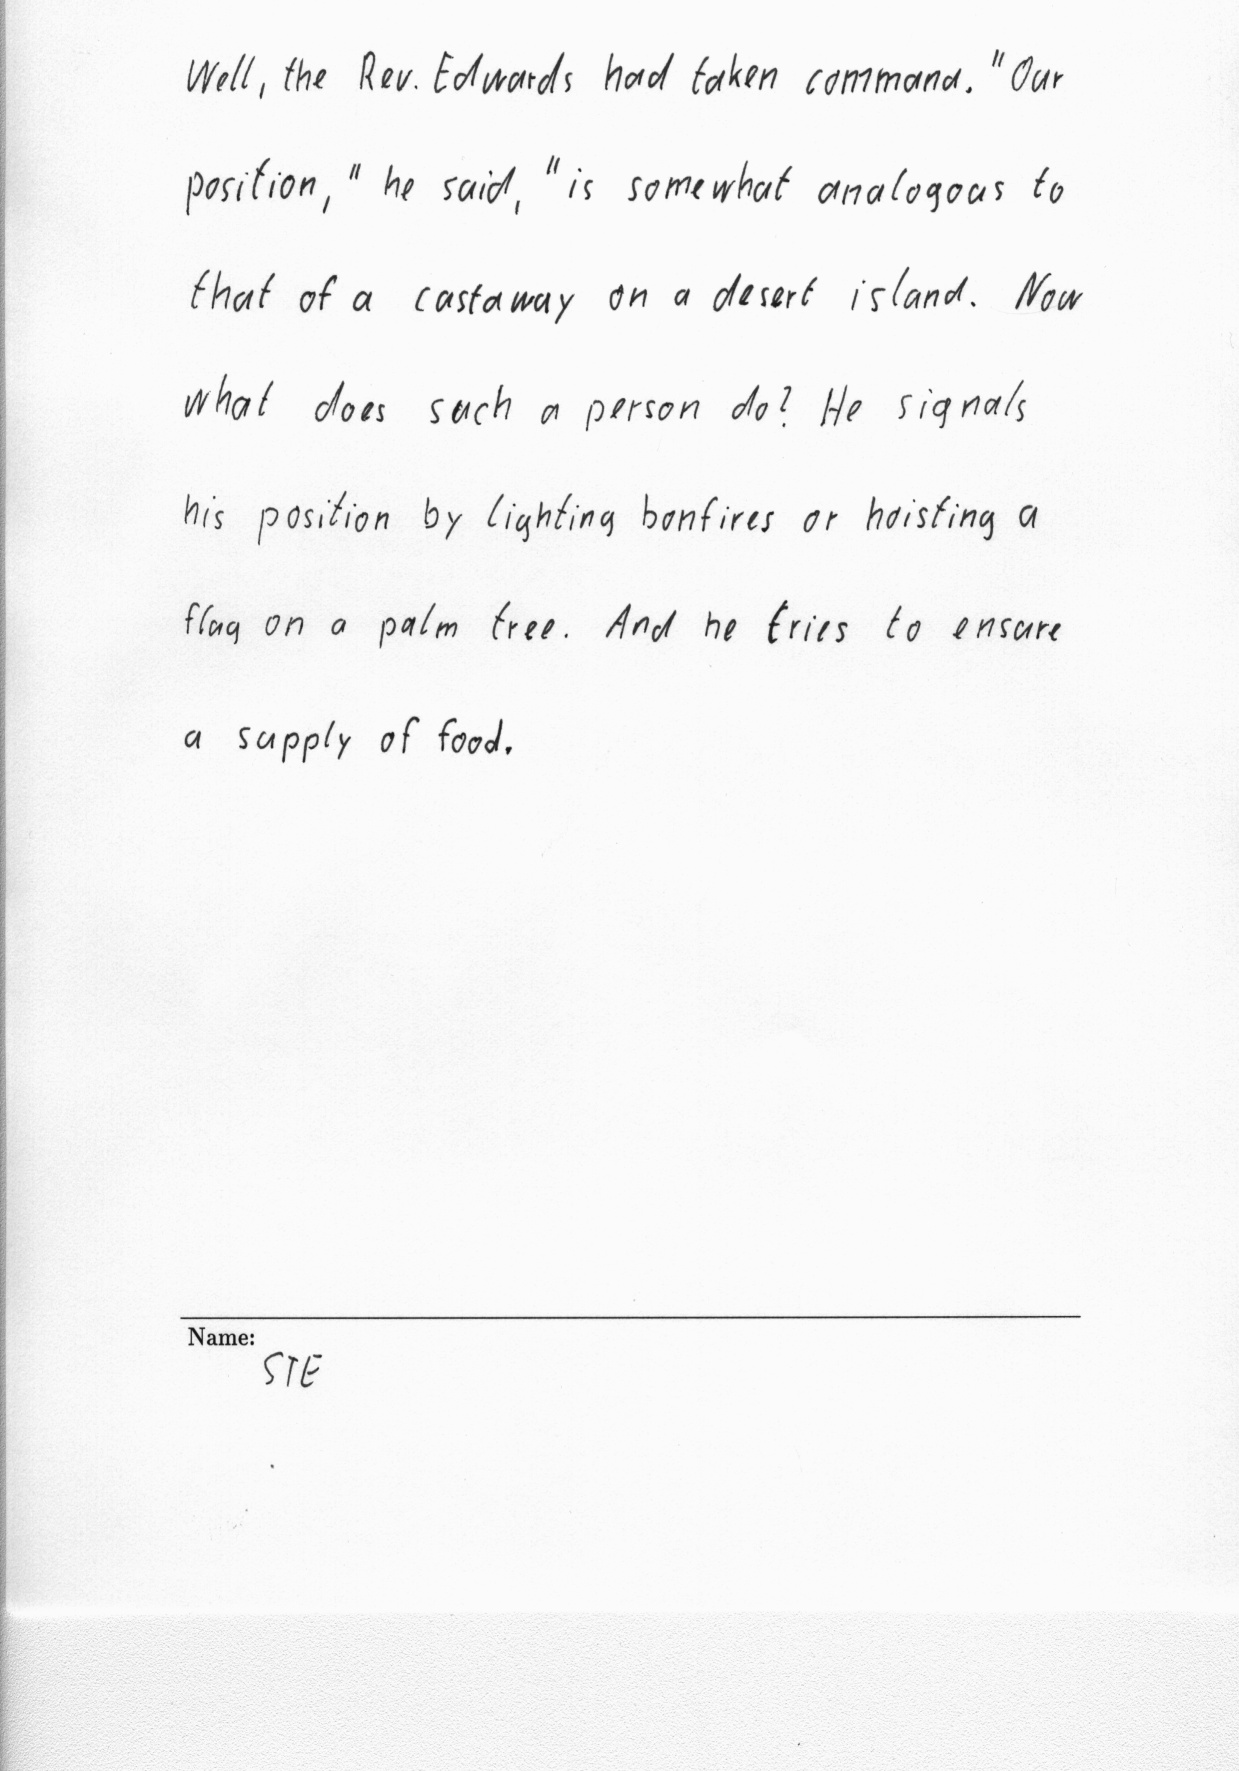 Well, the Rev. Edwards had taken command. "Our
position," he said, "is somewhat analogous to
that of a castaway on a desert island. Now
what does such a person do? He signals
his position by lighting bonfires or hoisting a
flag on a palm tree. And he tries to ensure
a supply of food.
Name:
STE